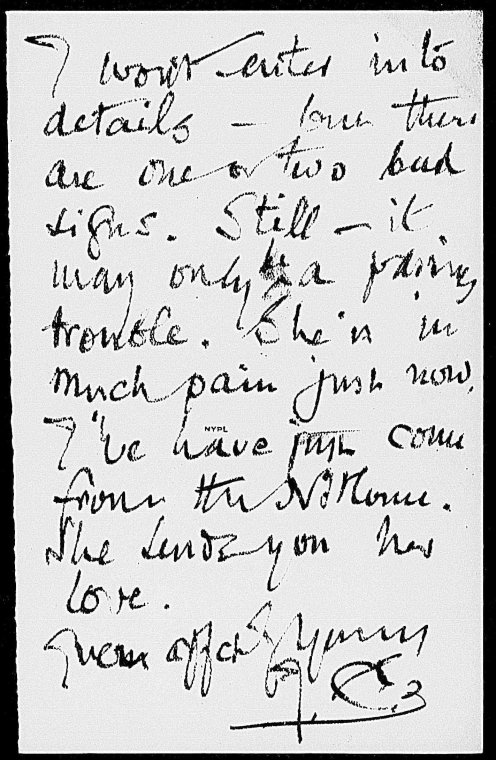 I won't enter into
details – but there
are one or two bad
signs. Still – it
may only be a passing
trouble. She is in
much pain just now.
I've have just come
NYPL
from the N. Home.
She sends you her
love.
affcly Yours